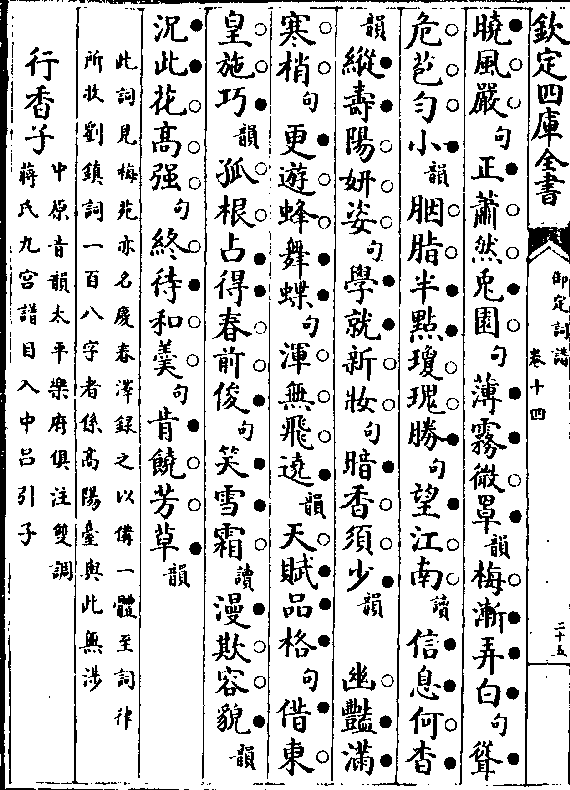 欽定四庫全書 御定詞譜 卷十四 二十五
曉風嚴句正蕭然兎園句薄霧微罩韻梅漸弄白句聳
危苞勻小韻胭脂半點瓊瑰勝句望江南讀信息何杳
韻縱壽陽妍姿句學就新妝句暗香須少韻 幽豔滿
寒梢句更遊蜂舞蝶句渾無飛遶韻天賦品格句借東
皇施巧韻孤根占得春前俊句笑雪霜讀漫欺容貌韻
況此花髙强句終待和羹句肯饒芳草韻
此詞見梅苑亦名慶春澤録之以備一體至詞律
所收劉鎮詞一百八字者係髙陽臺與此無涉
行香子 中原音韻太平樂府俱注雙調
蔣氏九宫譜目入中吕引子